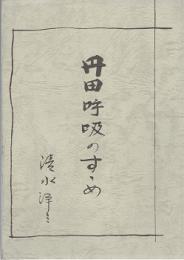 丹田呼吸のすゝめ
清水